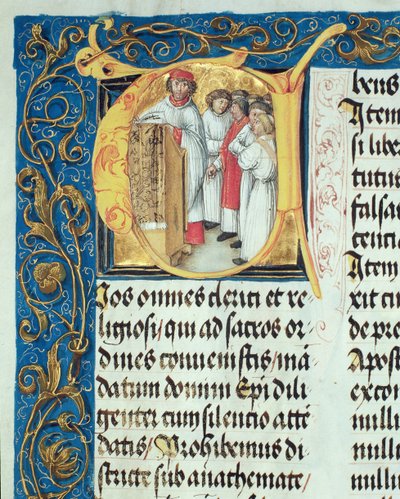 Vos omnes clerici et re-
ligiosi / qui ad sacros or-
dines convenistis / mā
datum domini Epi dili
genter cum silentio attē
datis / Prohibemus di-
stricte sub anathemate /
bens
Item
si libe
tutus
falsa
tentia
Item
xit cu
de
Apost
excom
nulli
nullo